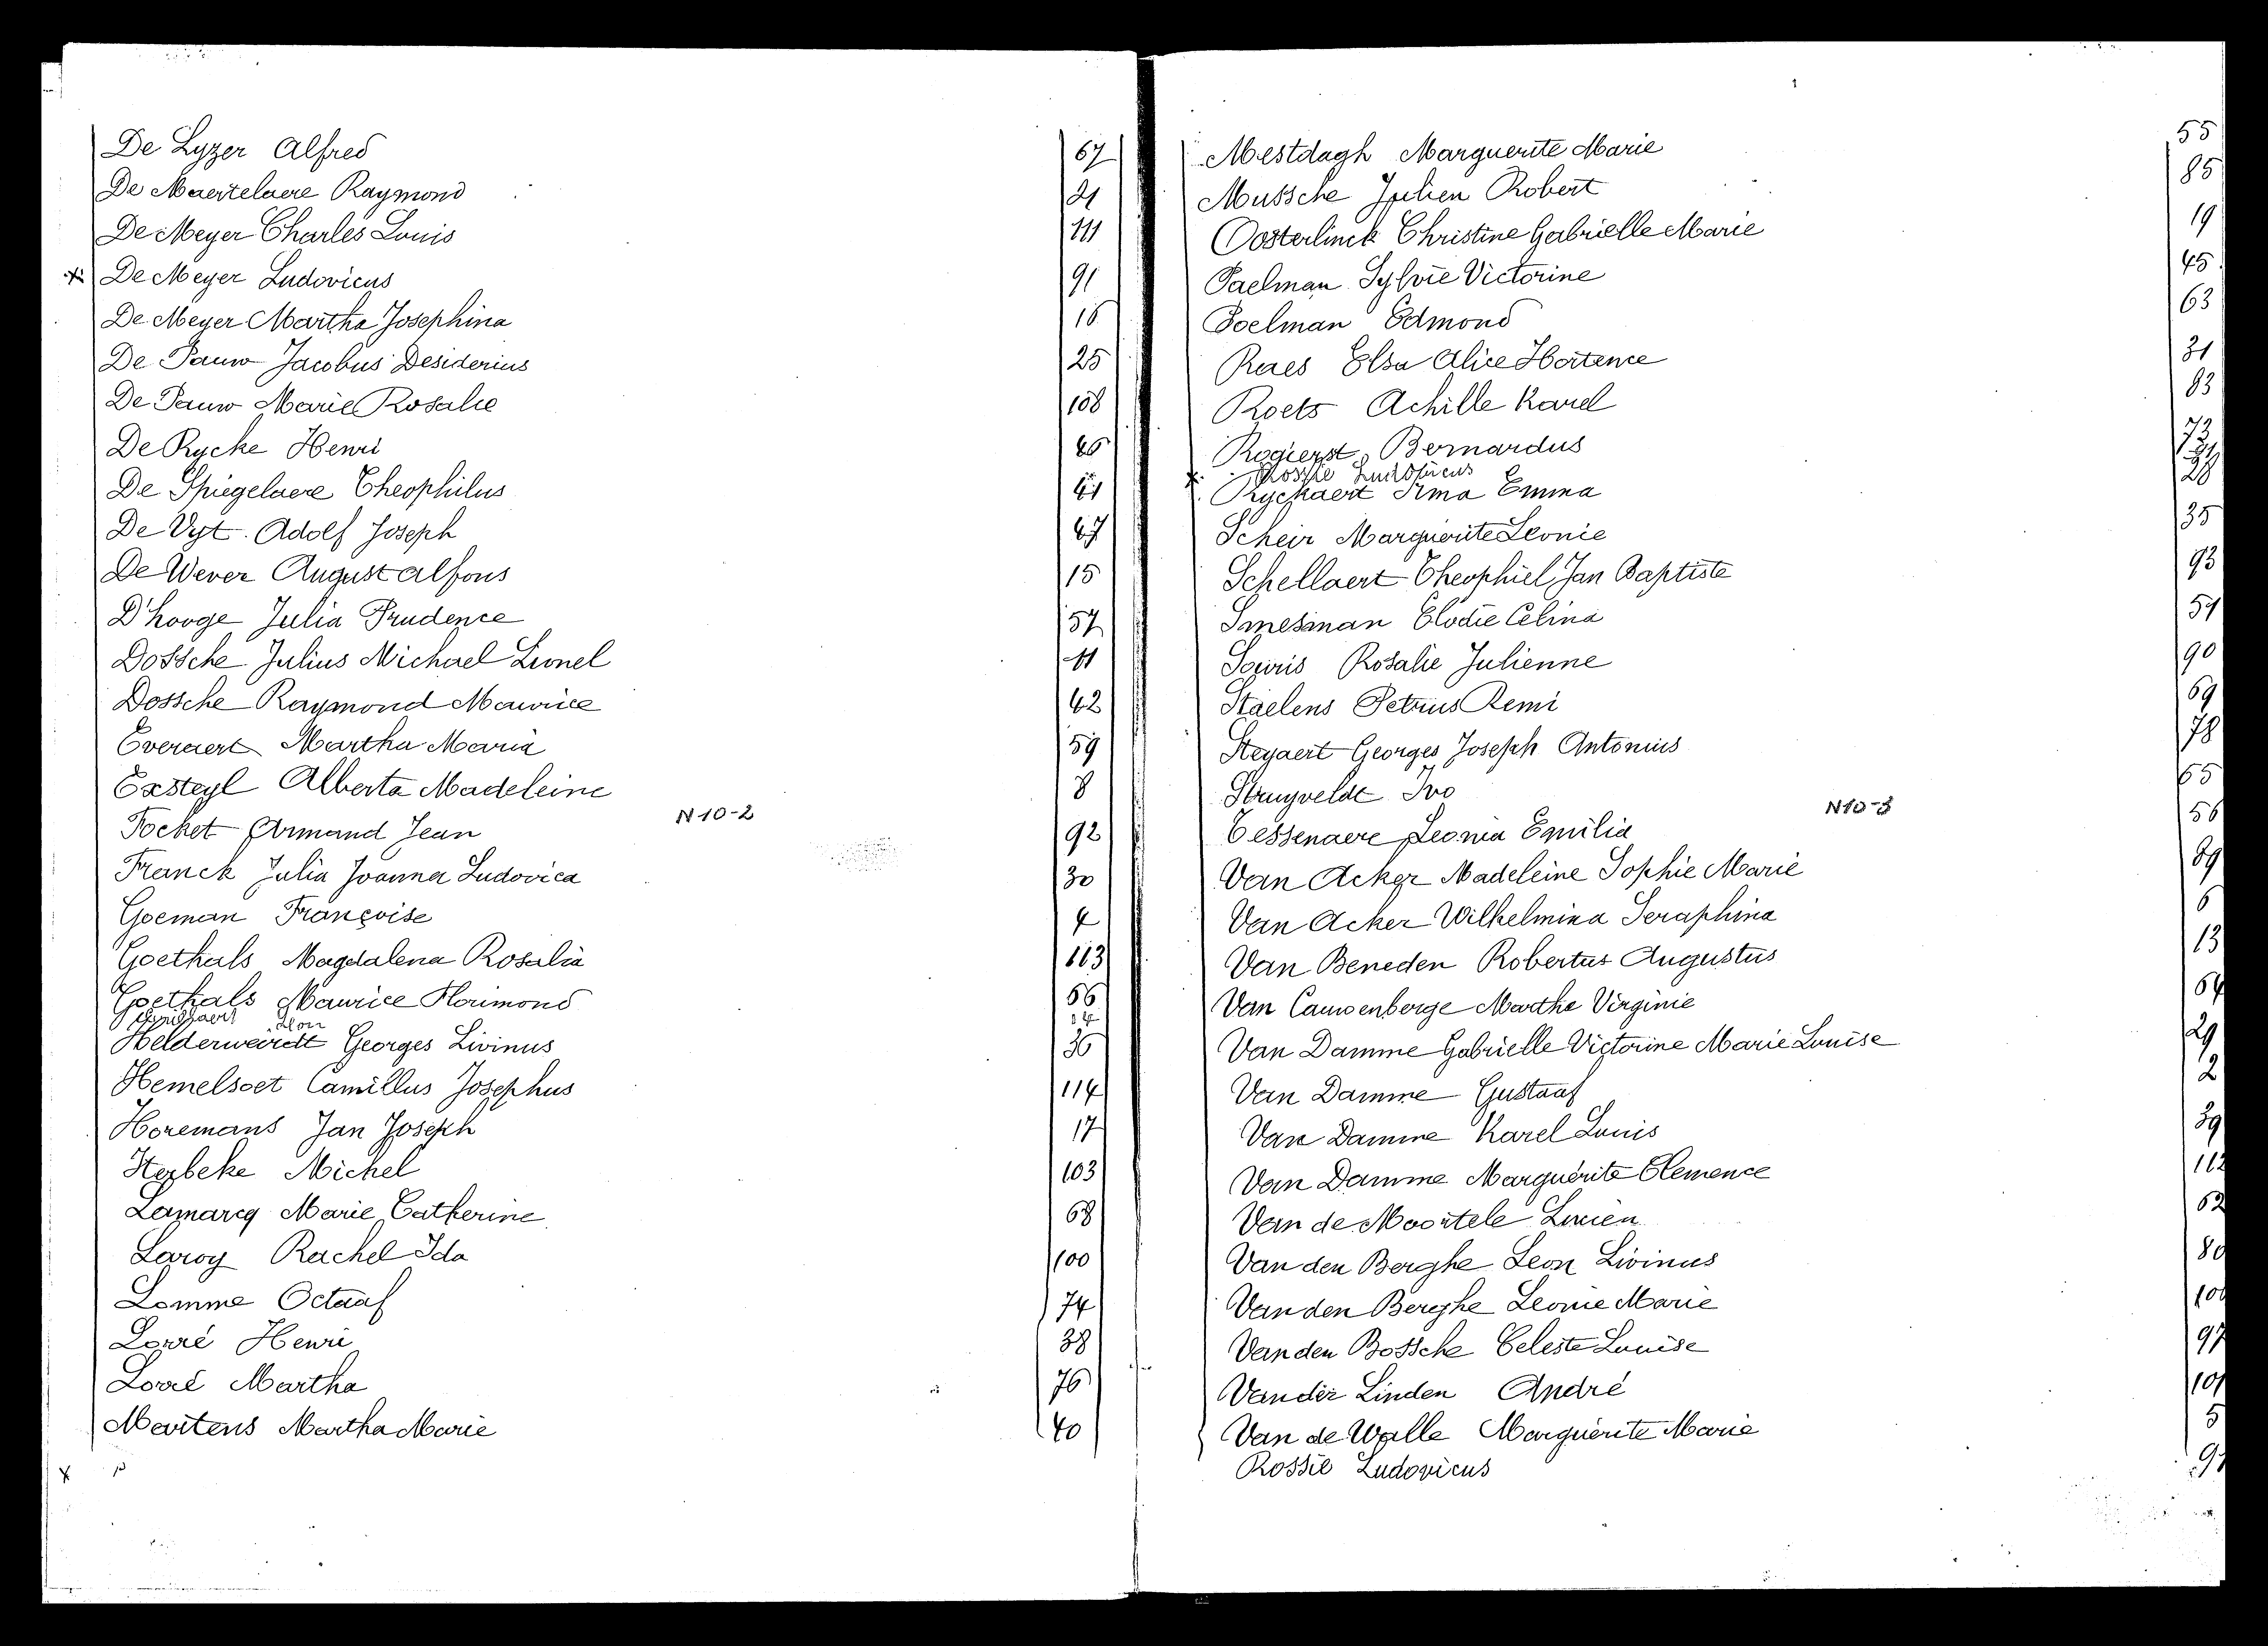 De Lyzer Alfred 67
De Maertelaere Raymond 21
De Meyer Charles Louis 111
x De Meyer Ludovicus 91
De Meyer Martha Josephina 16
De Pauw Jacobus Desiderius 25
De Pauw Marie Rosalie 108
De Rycke Henri
De Spiegelaere Theophilus
De Vyt Adolf Joseph
De Wever August Alfons 15
D'hooge Julia Prudence 57
Dossche Julius Michael Leonel 11
Dossche Raymond Maurice 42
Everaert Martha Maria 59
Exsteyl Alberta Madeleine 8
N 10-2
Focket Armand Jean 92
Franck Julia Joanna Ludovica 30
Goeman Françoise 4
Goethals Magdalena Rosalia 113
Goethals Maurice Florimond
Helderweirdt Georges Livinus 36
Hemelsoet Camillus Josephus 114
Horemans Jan Joseph 17
Herbeke Michel 103
Lamarcq Marie Catherine 68
Laroy Rachel Ida 100
Lomme Octaaf 74
Lorré Henri 38
Lorré Martha 76
Martens Martha Marie 40
x
Mestdagh Marguerite Marie 55
Mussche Julien Robert 85
Oosterlinck Christine Gabrielle Marie 19
Paelman Sylvie Victorine 45
Poelman Edmond 63
Raes Elsa Alice Hortence 31
Roets Achille Karel 83
Rogierst Bernardus 73
x Rossie Ludovicus
Ryckaert Irma Emma 28
Scheir Marguerite Leonie 35
Schellaert Theophiel Jan Baptiste 93
Smesman Elodie Celina 51
Souris Rosalie Julienne 90
Staelens Petrus Remi 69
Steyaert Georges Joseph Antonius 78
Struyveldt Ivo 65
N 10-3
Tessenaere Leonia Emilia 56
Van Acker Madeleine Sophie Marie 89
Van Acker Wilhelmina Seraphina 6
Van Beneden Robertus Augustus 13
Van Cauwenberge Marthe Virginie 64
Van Damme Gabrielle Victorine Marie Louise 29
Van Damme Gustaaf 2
Van Damme Karel Louis 39
Van Damme Marguérite Clemence 112
Van de Moortele Lucien 62
Van den Berghe Leon Livinus 80
Van den Berghe Leonie Marie
Van den Bossche Celeste Louise 97
Van der Linden André
Van de Walle Marguerite Marie 5
Rossie Ludovicus